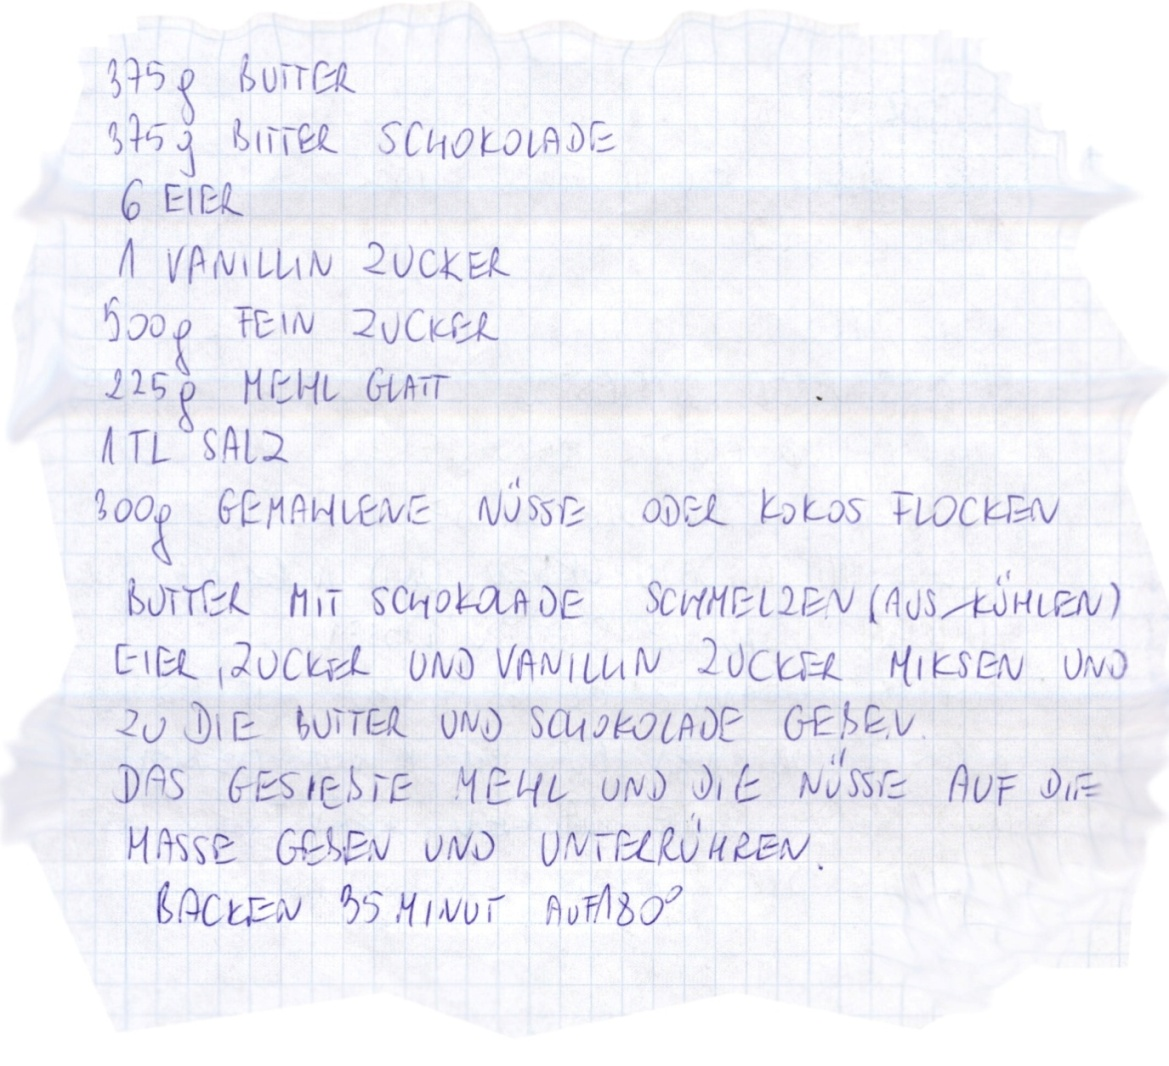 375g BUTTER
375g BITTER SCHOKOLADE
6 EIER
1 VANILLIN ZUCKER
500g FEIN ZUCKER
225g MEHL GLATT
1 TL SALZ
300g GEMAHLENE NÜSSE ODER KOKOS FLOCKEN
BUTTER MIT SCHOKOLADE SCHMELZEN (AUS-KÜHLEN)
EIER, ZUCKER UND VANILLIN ZUCKER MIKSEN UND
ZU DIE BUTTER UND SCHOKOLADE GEBEN.
DAS GESIEBTE MEHL UND DIE NÜSSE AUF DIE
MASSE GEBEN UND UNTERRÜHREN.
BACKEN 35 MINUT AUF 180°